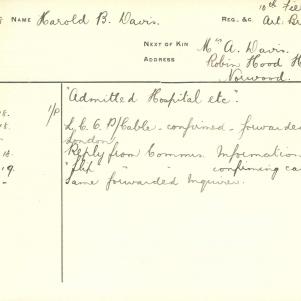 NAME Harold B. Davis.
REG. &C.
10th Fie
Art. Br
NEXT OF KIN Mrs A. Davis.
ADDRESS Robin Hood H
Norwood.
"Admitted Hospital etc".
1/P L.C.C. P/Cable - confirmed - forwarded
London
Reply from Commrs. Information
19. " flip " " confirming ca
- Same forwarded Inquirer.